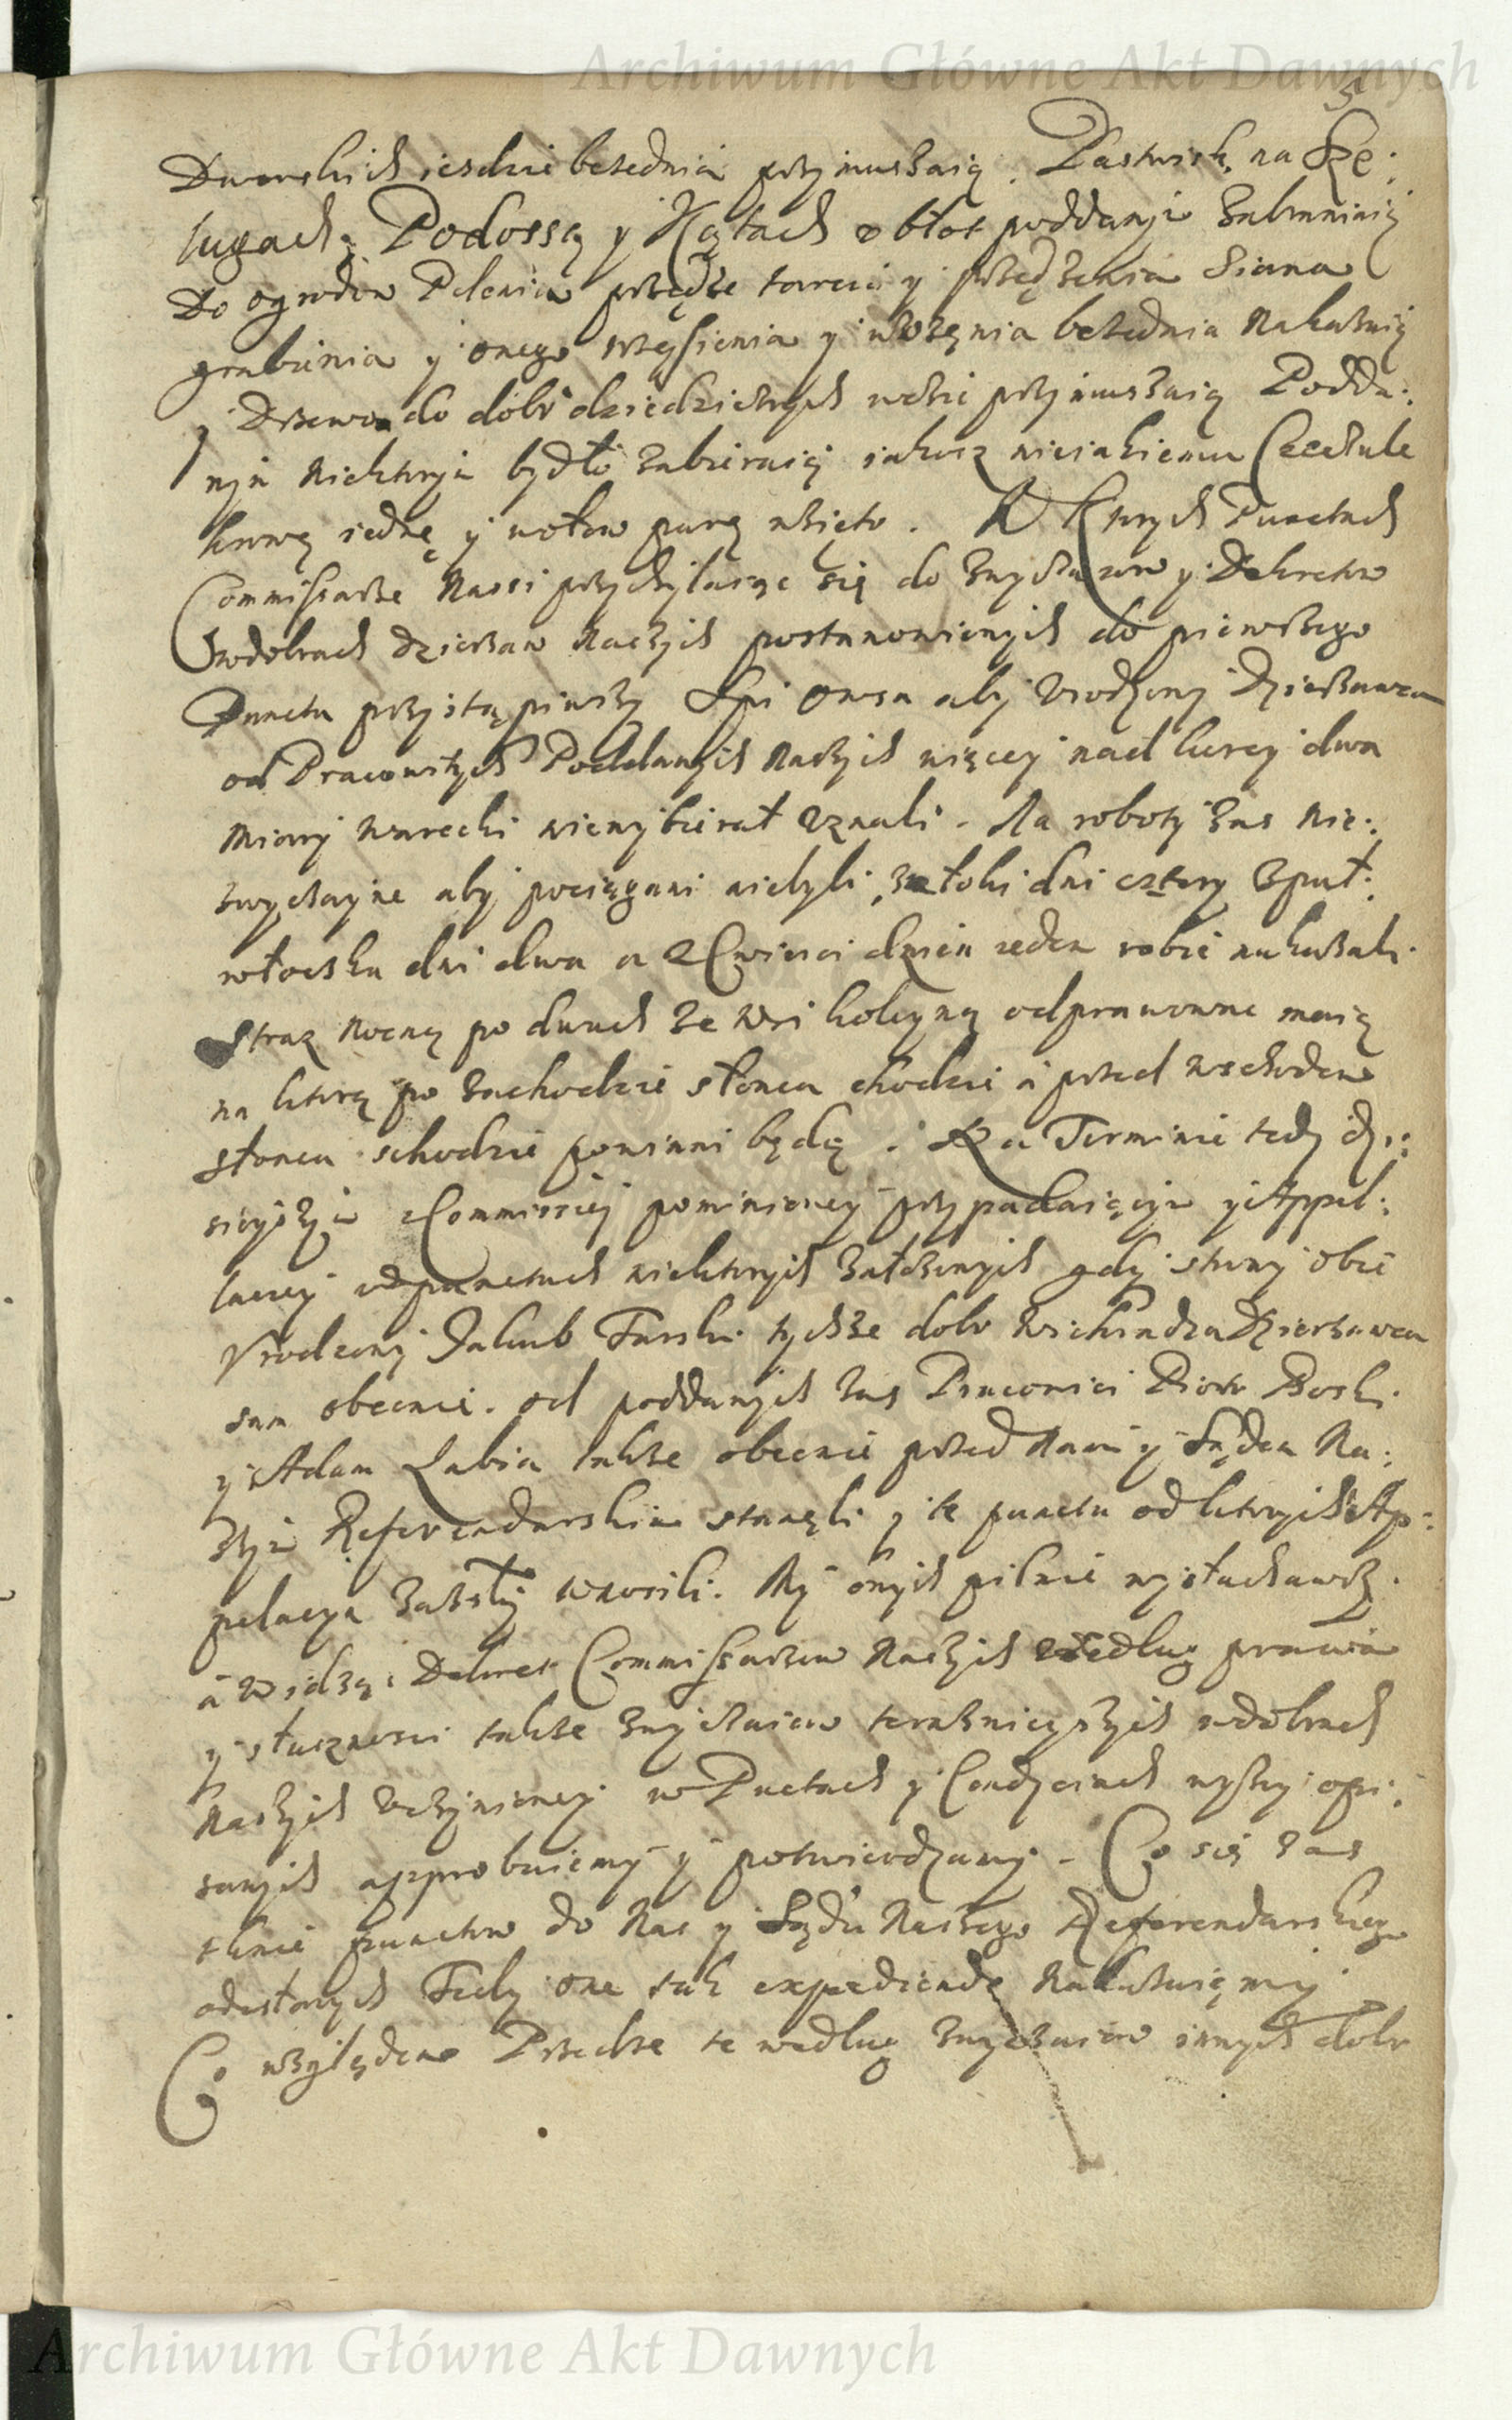 Archiwum Główne Akt Dawnych
5
Dworskich iezdzic bezednia przymuszaią. Pastwisk na Szę:
ługach, Podossą y Kątach o błot poddanym zabraniaią
Do ogrodow Pelenia przędze tarcia y przędzenia Siana
grabienia y onego wysienia y wozęnia bezednia Nakazuią
y Drzewo do dobr dziedzicznych wozic przymuszaią Podda:
nym Niektorym bydło zabieraią iakosz nieiakiemu Cecchule
krowę iednę y wołow parę wzięto. W Ktorych Punctach
Commissarze Nassi przychylaiąc się do zwyczaiow y Dekretow
w dobrach dzierzaw Naszych postanowionych do pierwszego
Punctu przystąpiwszy Spi owsa aby Urodzony Dzierzawca
od Pracowitych Poddanych Naszych więcey nad kurcy dwa
Miary Wareckiey niewybierał uznali. Na roboty zas Nie:
zwyczayne aby pociągani niebyli, z włoki dni cztery z puł:
włoczku dni dwa a z Cwierci dzien ieden robic nakazali.
Straz Nocną po dwuch ze wsi koleyną odprawowac maią
na ktorą po zachodzie słonca chodzic a przed wschodem
słonca schodzic powinni będą. Na Terminie tedy dzi:
sieyszym z Commissiey pomienioney przypadaiącym y Appel:
lacyey w punctach niektorych założonych gdy strony obie
Urodzony Jakub Turski tychze dobr Nichradza Dzierzawca
sam obecnie. od poddanych zas Pracowici Piotr Boski
y Adam Labia takze obecnie przed Nami y Sądem Na:
szym Referendarskim stanęli y te puncta od ktorych Ap:
pelacya zaszły wnosili. My onych pilnie wysłuchawszy
a widząc Dekret Commissarzow Naszych według prawa
y słusznosci takze zwyczaiow teraznieyszych w dobrach
Naszych uczyniony w Puctach y Condyciach wyszey opi:
sanych approbuiemy y potwierdzamy. Co się zas
tknie punctow do Nas y Sądu Naszego Referendarskiego
odesłanych Tedy one tak expediendę Nakazuięmy
Co względem Przedze te według zwyczaiow innych dobr
Archiwum Główne Akt Dawnych